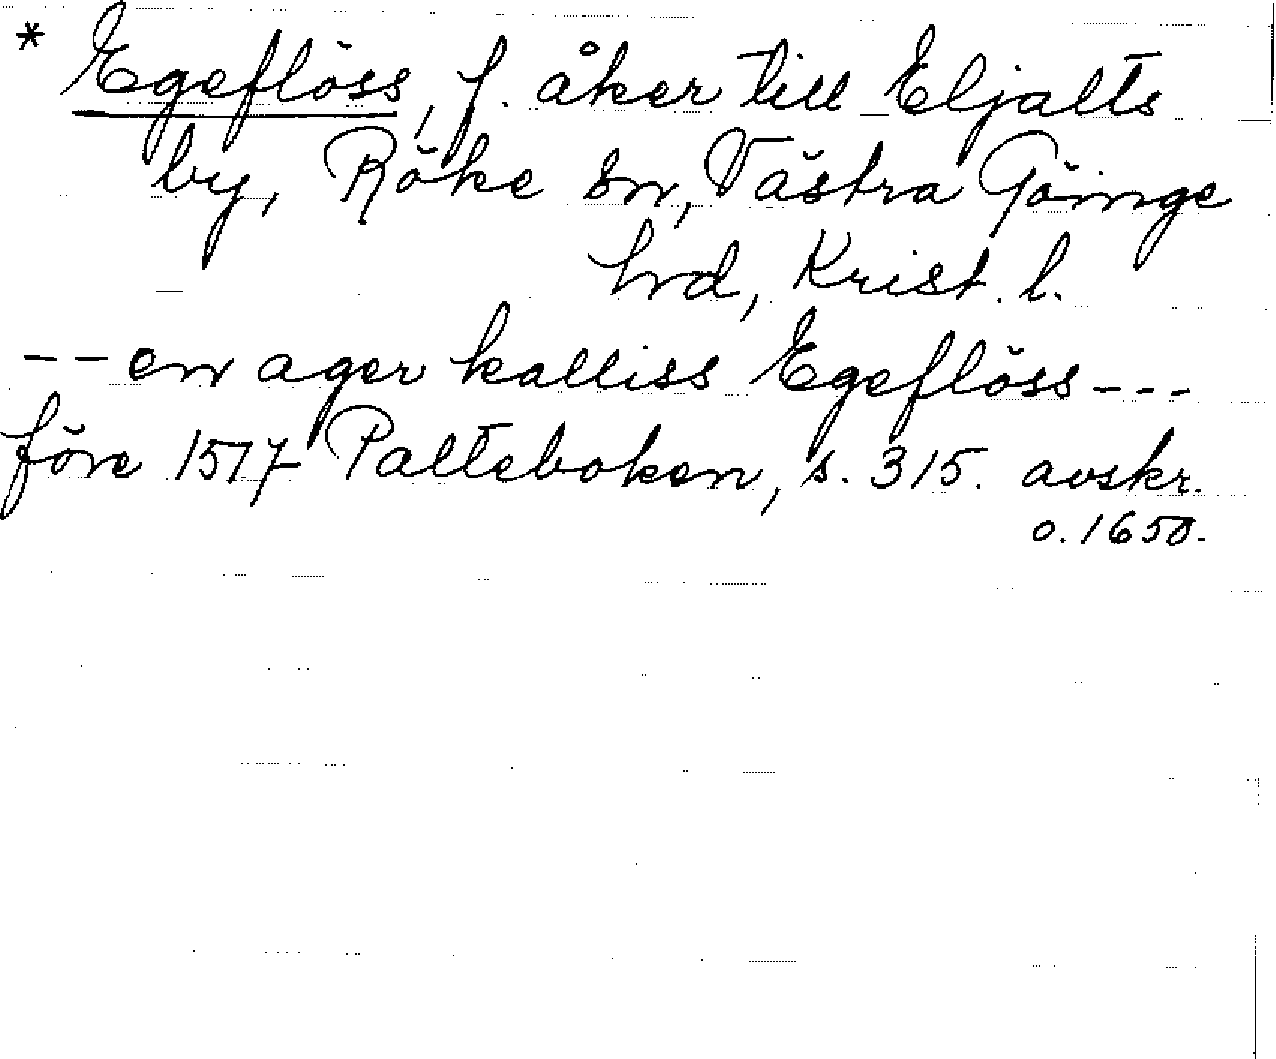 * Egeflöss, f. åker till Eljalts
by, Röke sn, Västra Göinge
hrd, Krist. l.
-- en ager kalliss Egeflöss ---
före 1517 Palteboken, s. 315. avskr.
o. 1650.